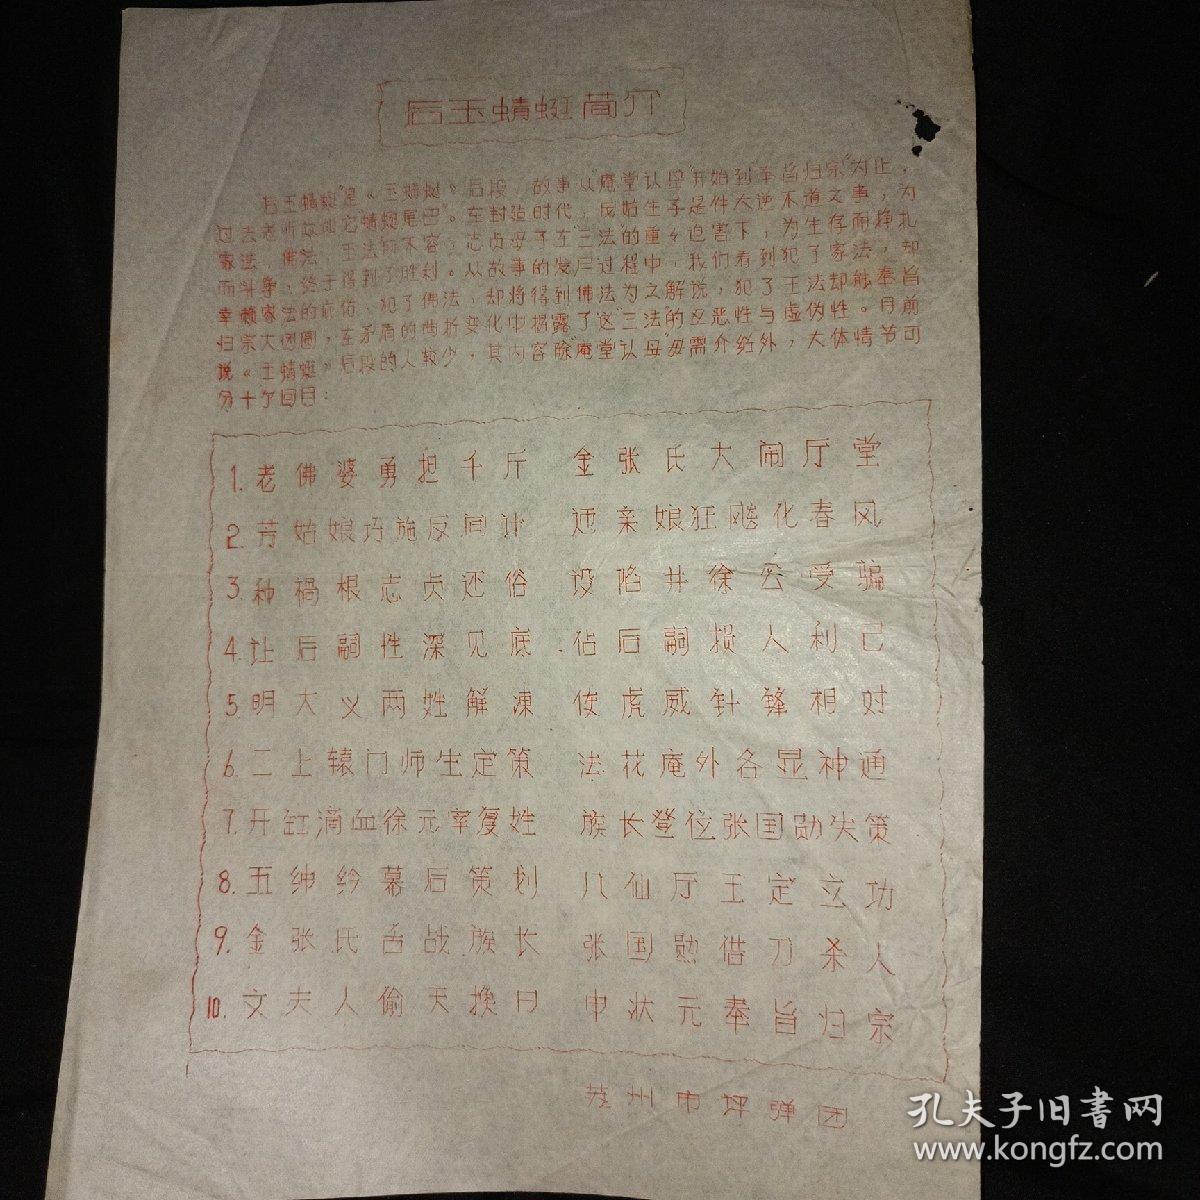 后玉蜻蜓简介
后玉蜻蜓"是《玉蜻蜓》后段,故事从"庵堂认母"开始到"奉旨归宗"为止,
过去老听故叫它蜻蜓尾巴"。在封建时代,尼姑生子是件大逆不道之事,为
家法、佛法、王法所不容,志贞母子在"三法"的重々迫害下,为生存而挣扎
而斗争,终于得到了胜利。从故事的发展过程中,我们看到犯了家法,却
幸赖家法的庇佑,犯了佛法,却将得到佛法为之解说,犯了王法却能奉旨
归宗大团圆,在矛盾的曲折变化中揭露了这"三法"的丑恶性与虚伪性。目前
说《玉蜻蜓》后段的人较少,其内容除"庵堂认母"毋需介绍外,大体情节可
分十个回目:
1.老佛婆勇担千斤 金张氏大闹厅堂
2.芳姑娘巧施反间计 迊亲娘狂飚化春风
3.种祸根志贞还俗 设陷井徐公受骗
4.让后嗣性深见底 佔后嗣损人利己
5.明大义两姓解冻 使虎威针锋相对
6.二上辕门师生定策 法花庵外各显神通
7.开缸滴血徐元宰复姓 族长登位张国勋失策
8.五绅衿幕后策划 八仙厅王定立功
9.金张氏舌战族长 张国勋借刀杀人
10.文夫人偷天换日 申状元奉旨归宗
苏州市坪弹团
孔夫子旧书网
www.kongfz.com